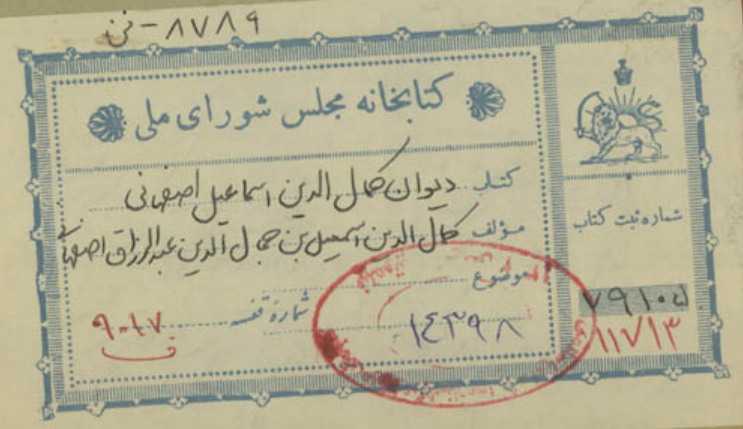 ۸۷۸۹ - فن
کتابخانه مجلس شورای ملی
کتاب دیوان کمال الدین اسماعیل اصفهانی
مؤلف کمال الدین اسمعیل بن جمال الدین عبدالرزاق اصفهانی
موضوع
شماره قفسه ۱۴۳۹۸
۹۰۱۷
شماره ثبت کتاب
۷۹۱۰۵
۱۱۷۱۳